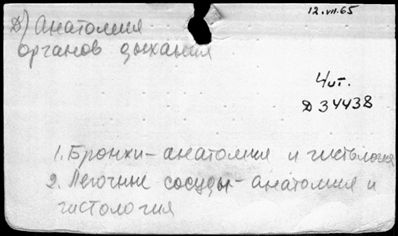 12.VII.65
Д) Анатомия
органов дыхания
Чит.
Д 34438
1. Бронхи-анатомия и гистология
2. Легочные сосуды-анатомия и
гистология